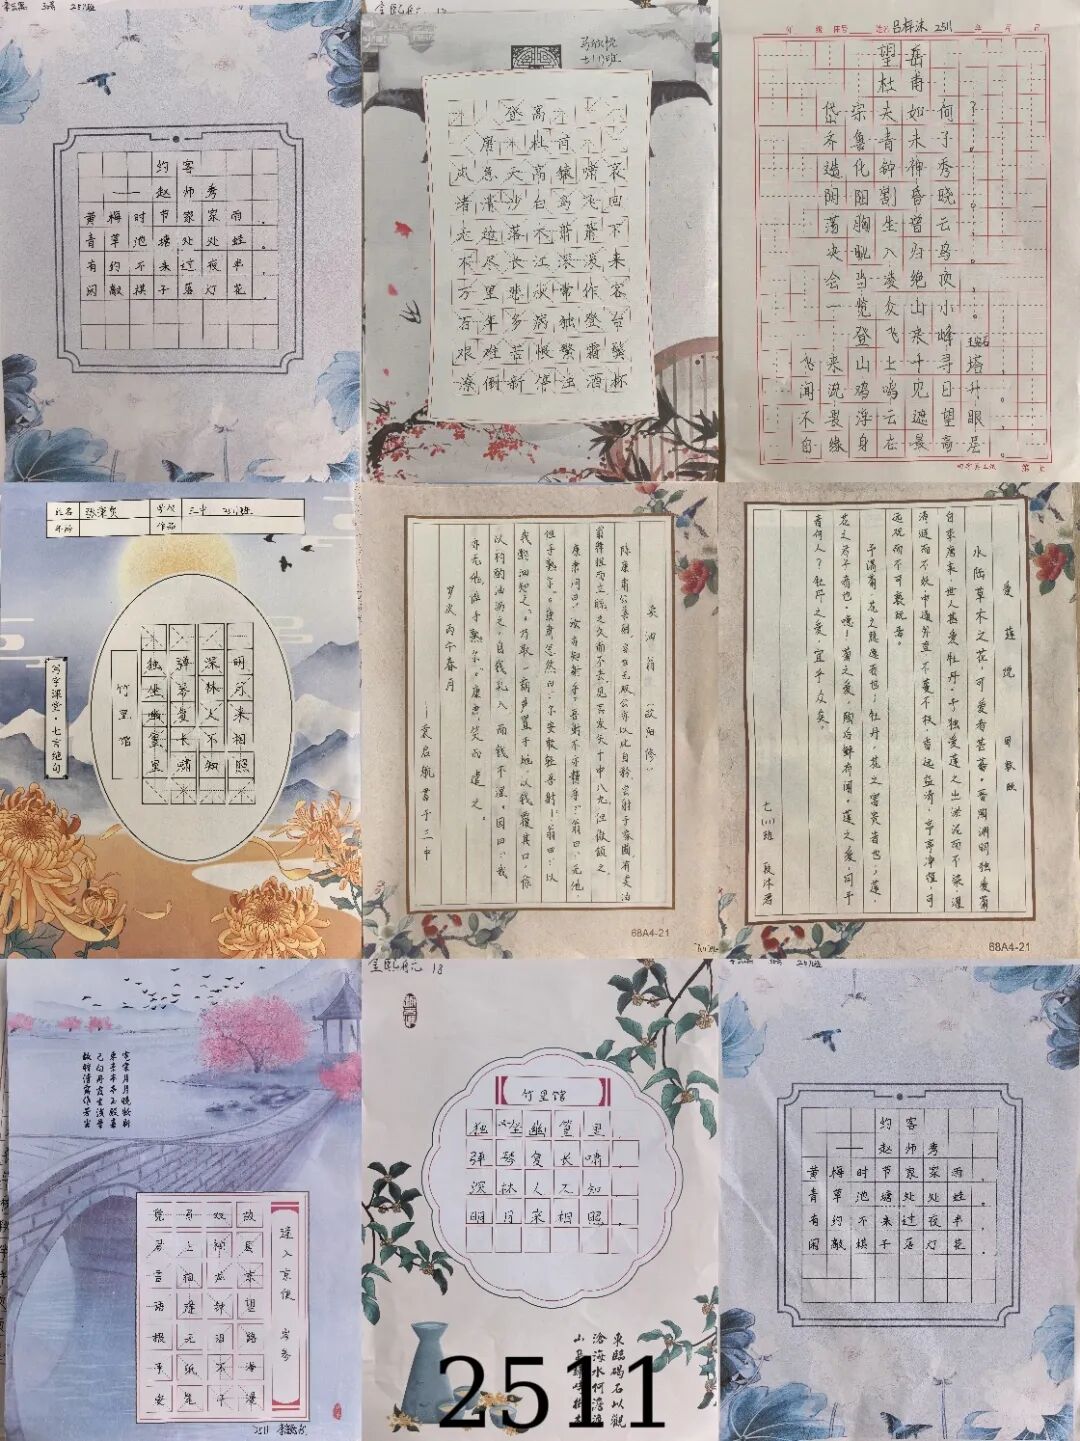 2511班
约客
——赵师秀
黄梅时节家家雨，
青草池塘处处蛙。
有约不来过夜半，
闲敲棋子落灯花。
七(11)班
登高
唐 杜甫
风急天高猿啸哀
渚清沙白鸟飞回
无边落木萧萧下
不尽长江滚滚来
万里悲秋常作客
百年多病独登台
艰难苦恨繁霜鬓
潦倒新停浊酒杯
吕梓沫 2511
望岳
杜甫
岱宗夫如何？
齐鲁青未了。
造化钟神秀，
阴阳割昏晓。
荡胸生曾云，
决眦入归鸟。
会当凌绝顶，
一览众山小。
登飞来峰
飞来山上千寻塔，
闻说鸡鸣见日升。
不畏浮云遮望眼，
自缘身在最高层。
姓名
学校 三中 2511班
年龄
作品
写字课堂·七言绝句
竹里馆
独坐幽篁里
弹琴复长啸
深林人不知
明月来相照
卖油翁（欧阳修）
陈康肃公善射，当世无双，公亦以此自矜。尝射于家圃，有卖油
翁释担而立，睨之久而不去。见其发矢十中八九，但微颔之。
康肃问曰：“汝亦知射乎？吾射不亦精乎？”翁曰：“无他，
但手熟尔。”康肃忿然曰：“尔安敢轻吾射！”翁曰：“以
我酌油知之。”乃取一葫芦置于地，以钱覆其口，徐
以杓酌油沥之，自钱孔入，而钱不湿。因曰：“我
亦无他，惟手熟尔。”康肃笑而遣之。
岁次丙午春月
——袁启航书于三中
68A4-21
爱莲说 周敦颐
水陆草木之花，可爱者甚蕃。晋陶渊明独爱菊
自李唐来，世人甚爱牡丹。予独爱莲之出淤泥而不染，濯
清涟而不妖，中通外直，不蔓不枝，香远益清，亭亭净植，可
远观而不可亵玩焉。
予谓菊，花之隐逸者也；牡丹，花之富贵者也；莲，
花之君子者也。噫！菊之爱，陶后鲜有闻。莲之爱，同予
者何人？牡丹之爱，宜乎众矣。
七(11)班 夏沐君
68A4-21
逢入京使 岑参
故园东望路漫漫
双袖龙钟泪不干
马上相逢无纸笔
凭君传语报平安
2511
18
竹里馆
独坐幽篁里，
弹琴复长啸，
深林人不知，
明月来相照，
東臨碣石以觀
滄海水何澹澹
2511班
约客
——赵师秀
黄梅时节家家雨，
青草池塘处处蛙。
有约不来过夜半，
闲敲棋子落灯花。
2511